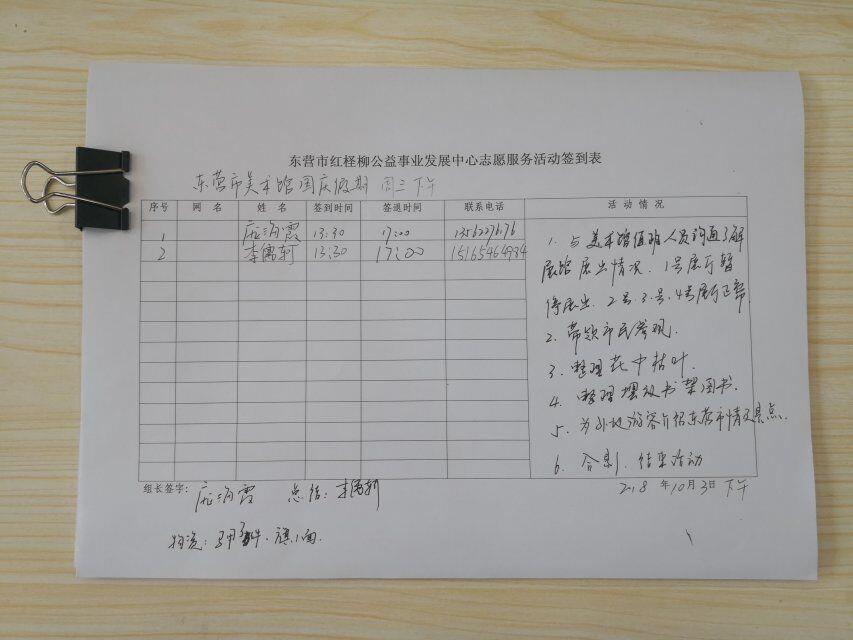 东营市红柽柳公益事业发展中心志愿服务活动签到表
东营市美术馆国庆假期 周三下午
序号 网 名 姓 名 签到时间 签退时间 联系电话 活 动 情 况
1 庞海霞 13:30 17:00
2 李儒轩 13:30 17:00 15165464984
1. 与美术馆值班人员沟通了解
展馆展出情况. 1号展厅暂
停展出. 2号.3号.4号展厅正常
2. 带领市民参观.
3. 整理花中枯叶.
4. 整理摆放书架图书.
5. 为外地游客介绍东营市情及景点.
6. 合影. 结束活动
组长签字: 庞海霞 总结: 李儒轩
2018年10月3日下午
物流: 旗1面.